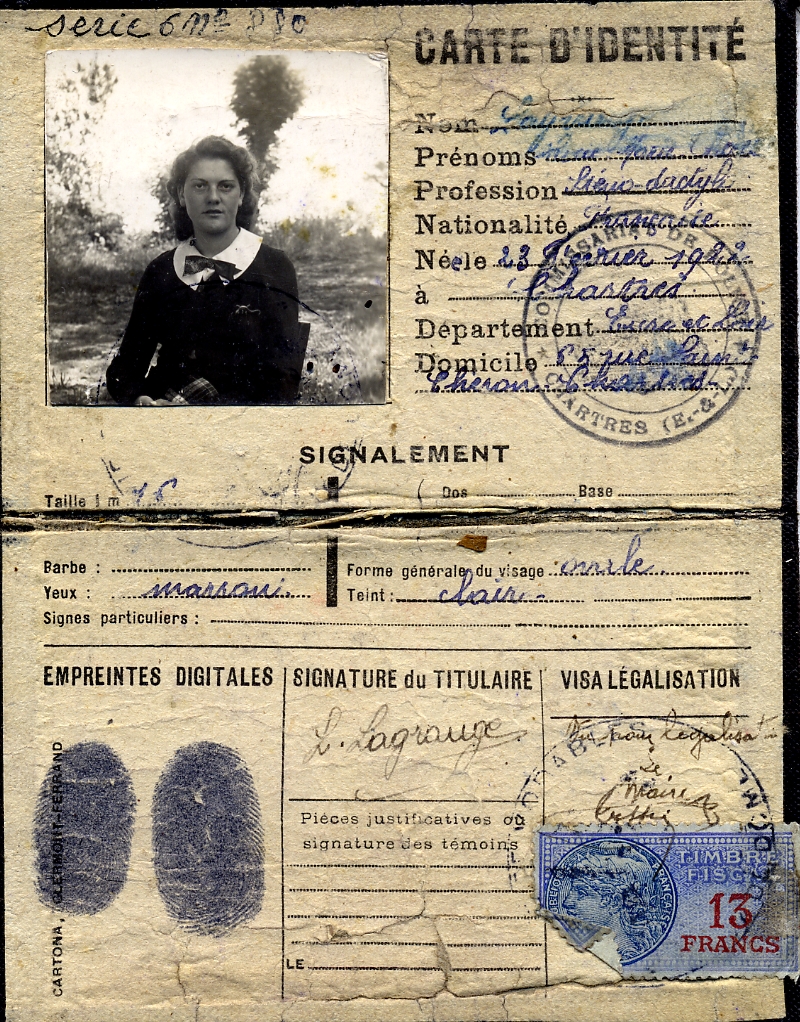 serie 6 nº 880
CARTE D'IDENTITÉ
Nom
Prénoms
Profession Sténo-dactylo
Nationalité Française
Née le 23 Février 1922
à Chartres
Département Eure et Loir
Domicile 65 rue Saint
Chéron Chartres
COMMISSARIAT DE POLICE
CHARTRES (E.-&-L.)
SIGNALEMENT
Taille 1 m 76
Dos Base
Barbe :
Forme générale du visage ovale
Yeux : marron
Teint : clair
Signes particuliers :
EMPREINTES DIGITALES
SIGNATURE du TITULAIRE
VISA LÉGALISATION
L. Lagrange
Vu pour légalisation
Le Maire
Pièces justificatives ou
signature des témoins
LE
CARTONA, CLERMONT-FERRAND
TIMBRE
FISCAL
13
FRANCS